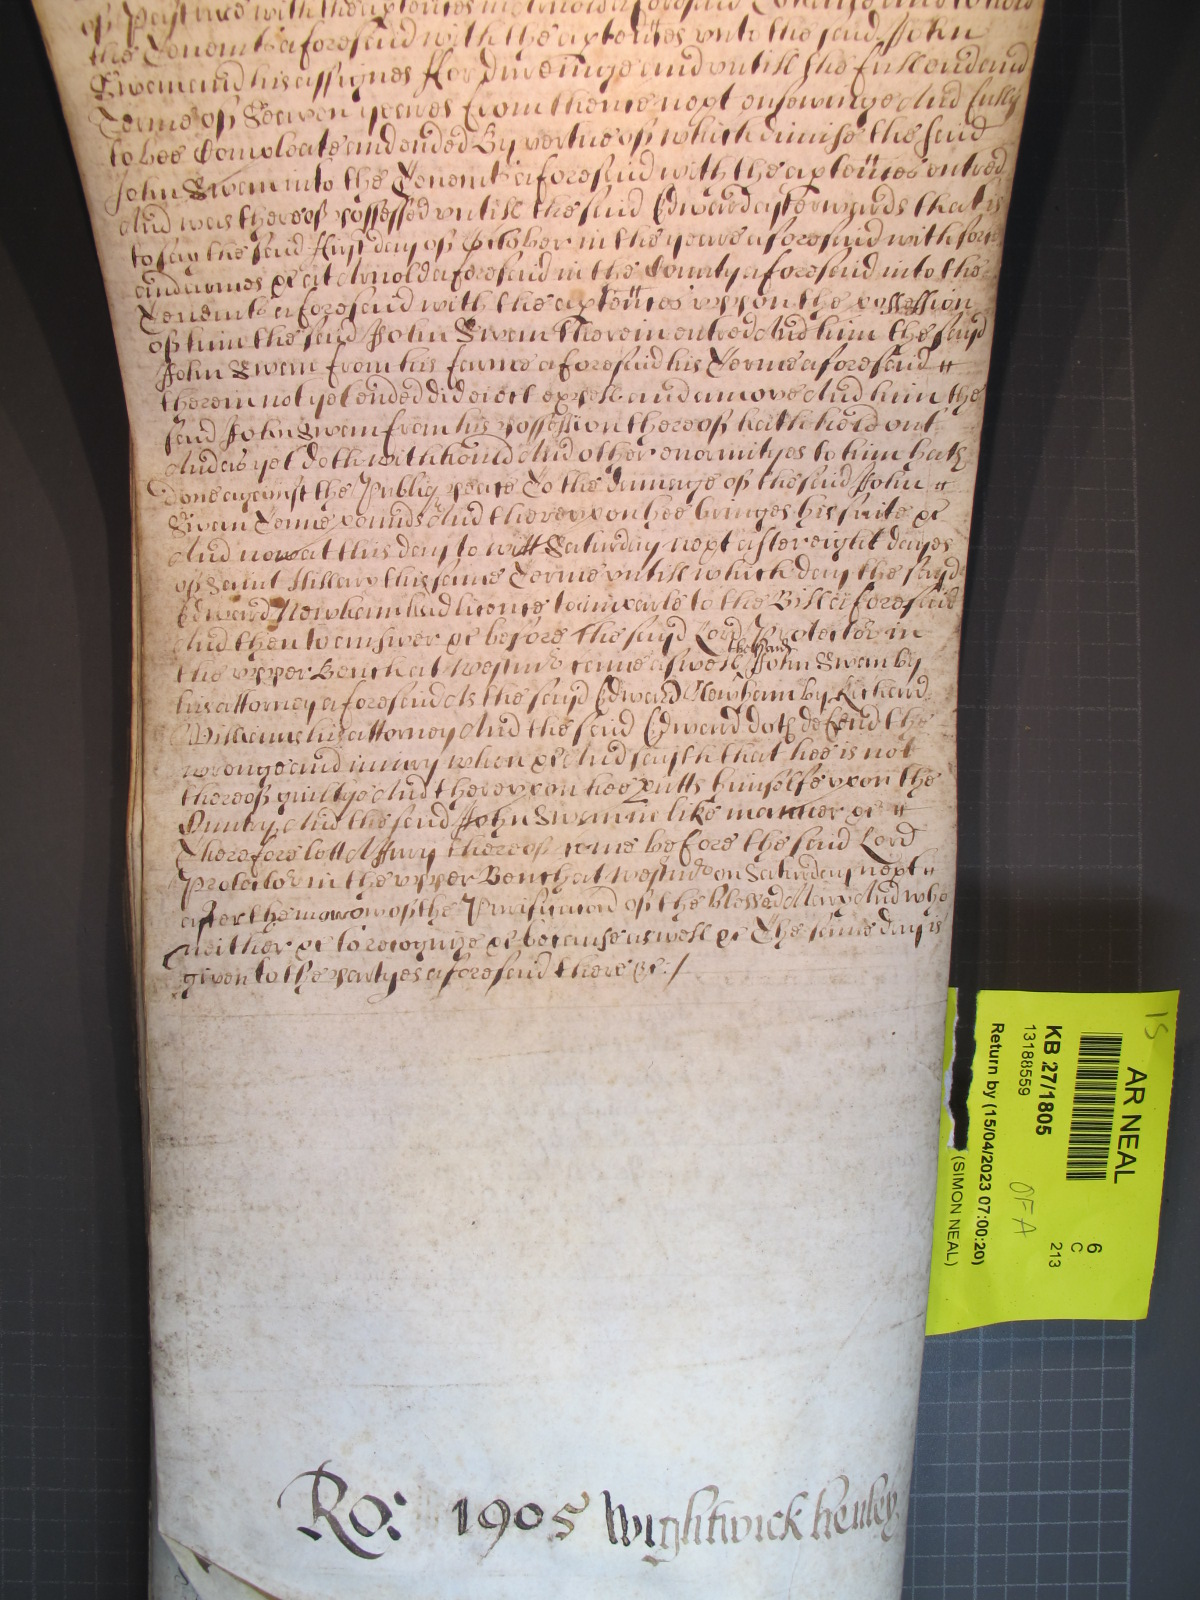 of pasture with the apptences in Arnold aforesaid To have and to hold
the Tenemts aforesaid with the apptences unto the said John
Swan and his assignes for duringe and untill the full end and
Terme of Seaven yeares from thence next ensewinge And fully
to bee Compleate and ended By vertue of which dimise the said
John Swan into the Tenemts aforesaid with the apptences entred
And was thereof possessed untill the said Edward afterwards that is
to say the said First day of October in the yeare aforesaid with force
and armes &c at Arnold aforesaid in the County aforesaid into the
Tenemts aforesaid with the apptences uppon the possession
of him the said John Swan therein entred And him the sayd
John Swan from his farme aforesaid his Terme aforesaid
therein not yet ended did eiect expell and amove And him the
said John Swan from his possession thereof hath held out
And as yet doth withhould And other enormityes to him hath
done against the Publiq peace To the damage of the said John
Swan Tenne pounds And thereupon hee bringes his suite &c
And now at this day to witt Saturday next after eight dayes
of Saint Hillary this same Terme untill which day the sayd
Edward Newham had licence to imparle to the Bill aforesaid
And then to answer &c before the sayd Lord Protector in
the upper Bench at Westmr came aswell the said John Swan by
his attorney aforesaid As the sayd Edward Newham by Richard
Williams his attorney And the said Edward doth defend the
wronge and iniury when &c And sayth that hee is not
thereof guiltye And thereupon hee putts himselfe upon the
Cuntry And the said John Swan in like manner &c
Therefore lett A Jury thereof come before the said Lord
Protector in the upper Bench at Westmr on Saturday next
after the morrow of the Purificacon of the blessed Mary And who
neither &c to recognize &c because aswell &c The same day is
given to the partyes aforesaid there &c:/
Ro: 1905 Wightwick henley
15
AR NEAL
KB 27/1805
13188559
Return by (15/04/2023 07:00:20)
(SIMON NEAL)
OFA
6
C
213